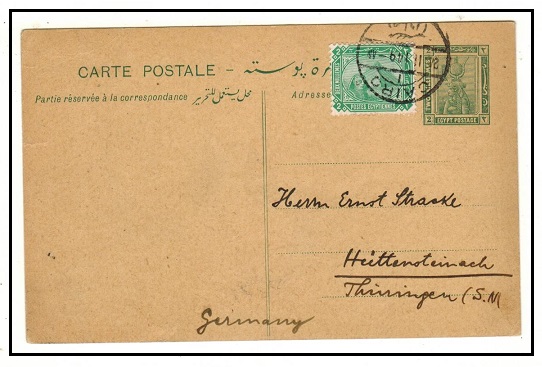 CARTE POSTALE –
Partie réservée à la correspondance محل يستعمل للتحرير
Adresse
POSTES EGYPTIENNES
2
CAIRO
2 ٢
EGYPT POSTAGE
Herrn Ernst Stracke
Hüttensteinach
Thüringen (S.M)
Germany